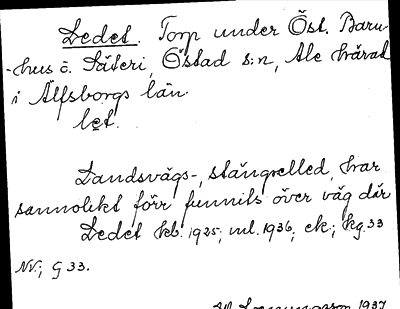 Ledet. Torp under Öst. Barn-
hus o. Säteri, Östad s:n, Ale härad
i Älfsborgs län.
let.
Landsvägs-, stängselled, har
sannolikt förr funnits över väg där
Ledet kb. 1925; ml. 1936; ek; hg. 33
NV.; G 33.
1937